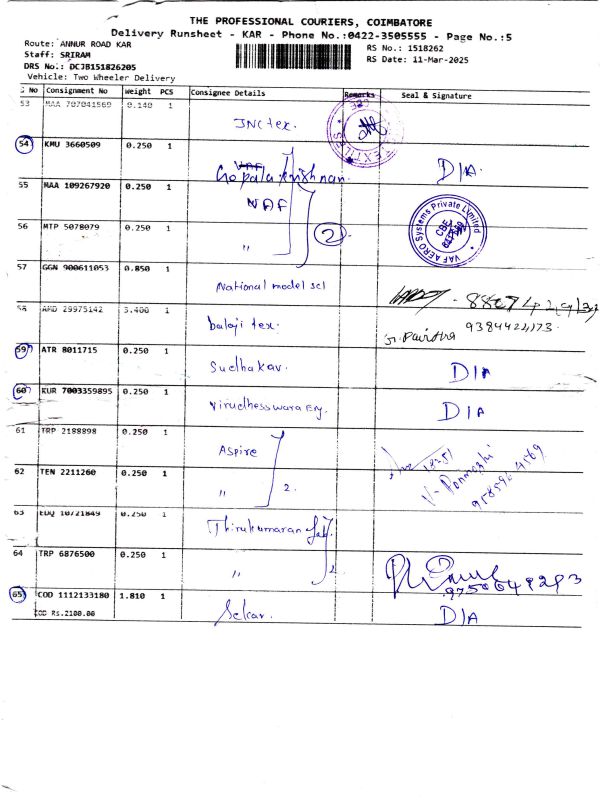 THE PROFESSIONAL COURIERS, COIMBATORE
Delivery Runsheet - KAR - Phone No.:0422-3505555 - Page No.:5
Route: ANNUR ROAD KAR
RS No.: 1518262
Staff: SRIRAM
RS Date: 11-Mar-2025
DRS No.: DCJB151826205
Vehicle: Two Wheeler Delivery
S No Consignment No Weight PCS Consignee Details Remarks Seal & Signature
53 MAA 707041569 0.140 1 JNC tex.
54 KMU 3660509 0.250 1 Gopala krishnan. D/A.
55 MAA 109267920 0.250 1 VAF
VAF AERO Systems Private Limited
CBE
56 MTP 5078079 0.250 1 " 2
57 GGN 900611053 0.850 1 National model scl
58 AMD 29975142 3.400 1 balaji tex. 9384424173
59 ATR 8011715 0.250 1 Sudhakar. D/A
60 KUR 7003359895 0.250 1 D/A
61 TRP 2188898 0.250 1 Aspire
62 TEN 2211260 0.250 1 " 2.
63 EDQ 10721849 0.250 1 Thirukumaran
64 TRP 6876500 0.250 1 " 2
65 COD 1112133180 1.810 1 Selcar. D/A
COD Rs.2100.00